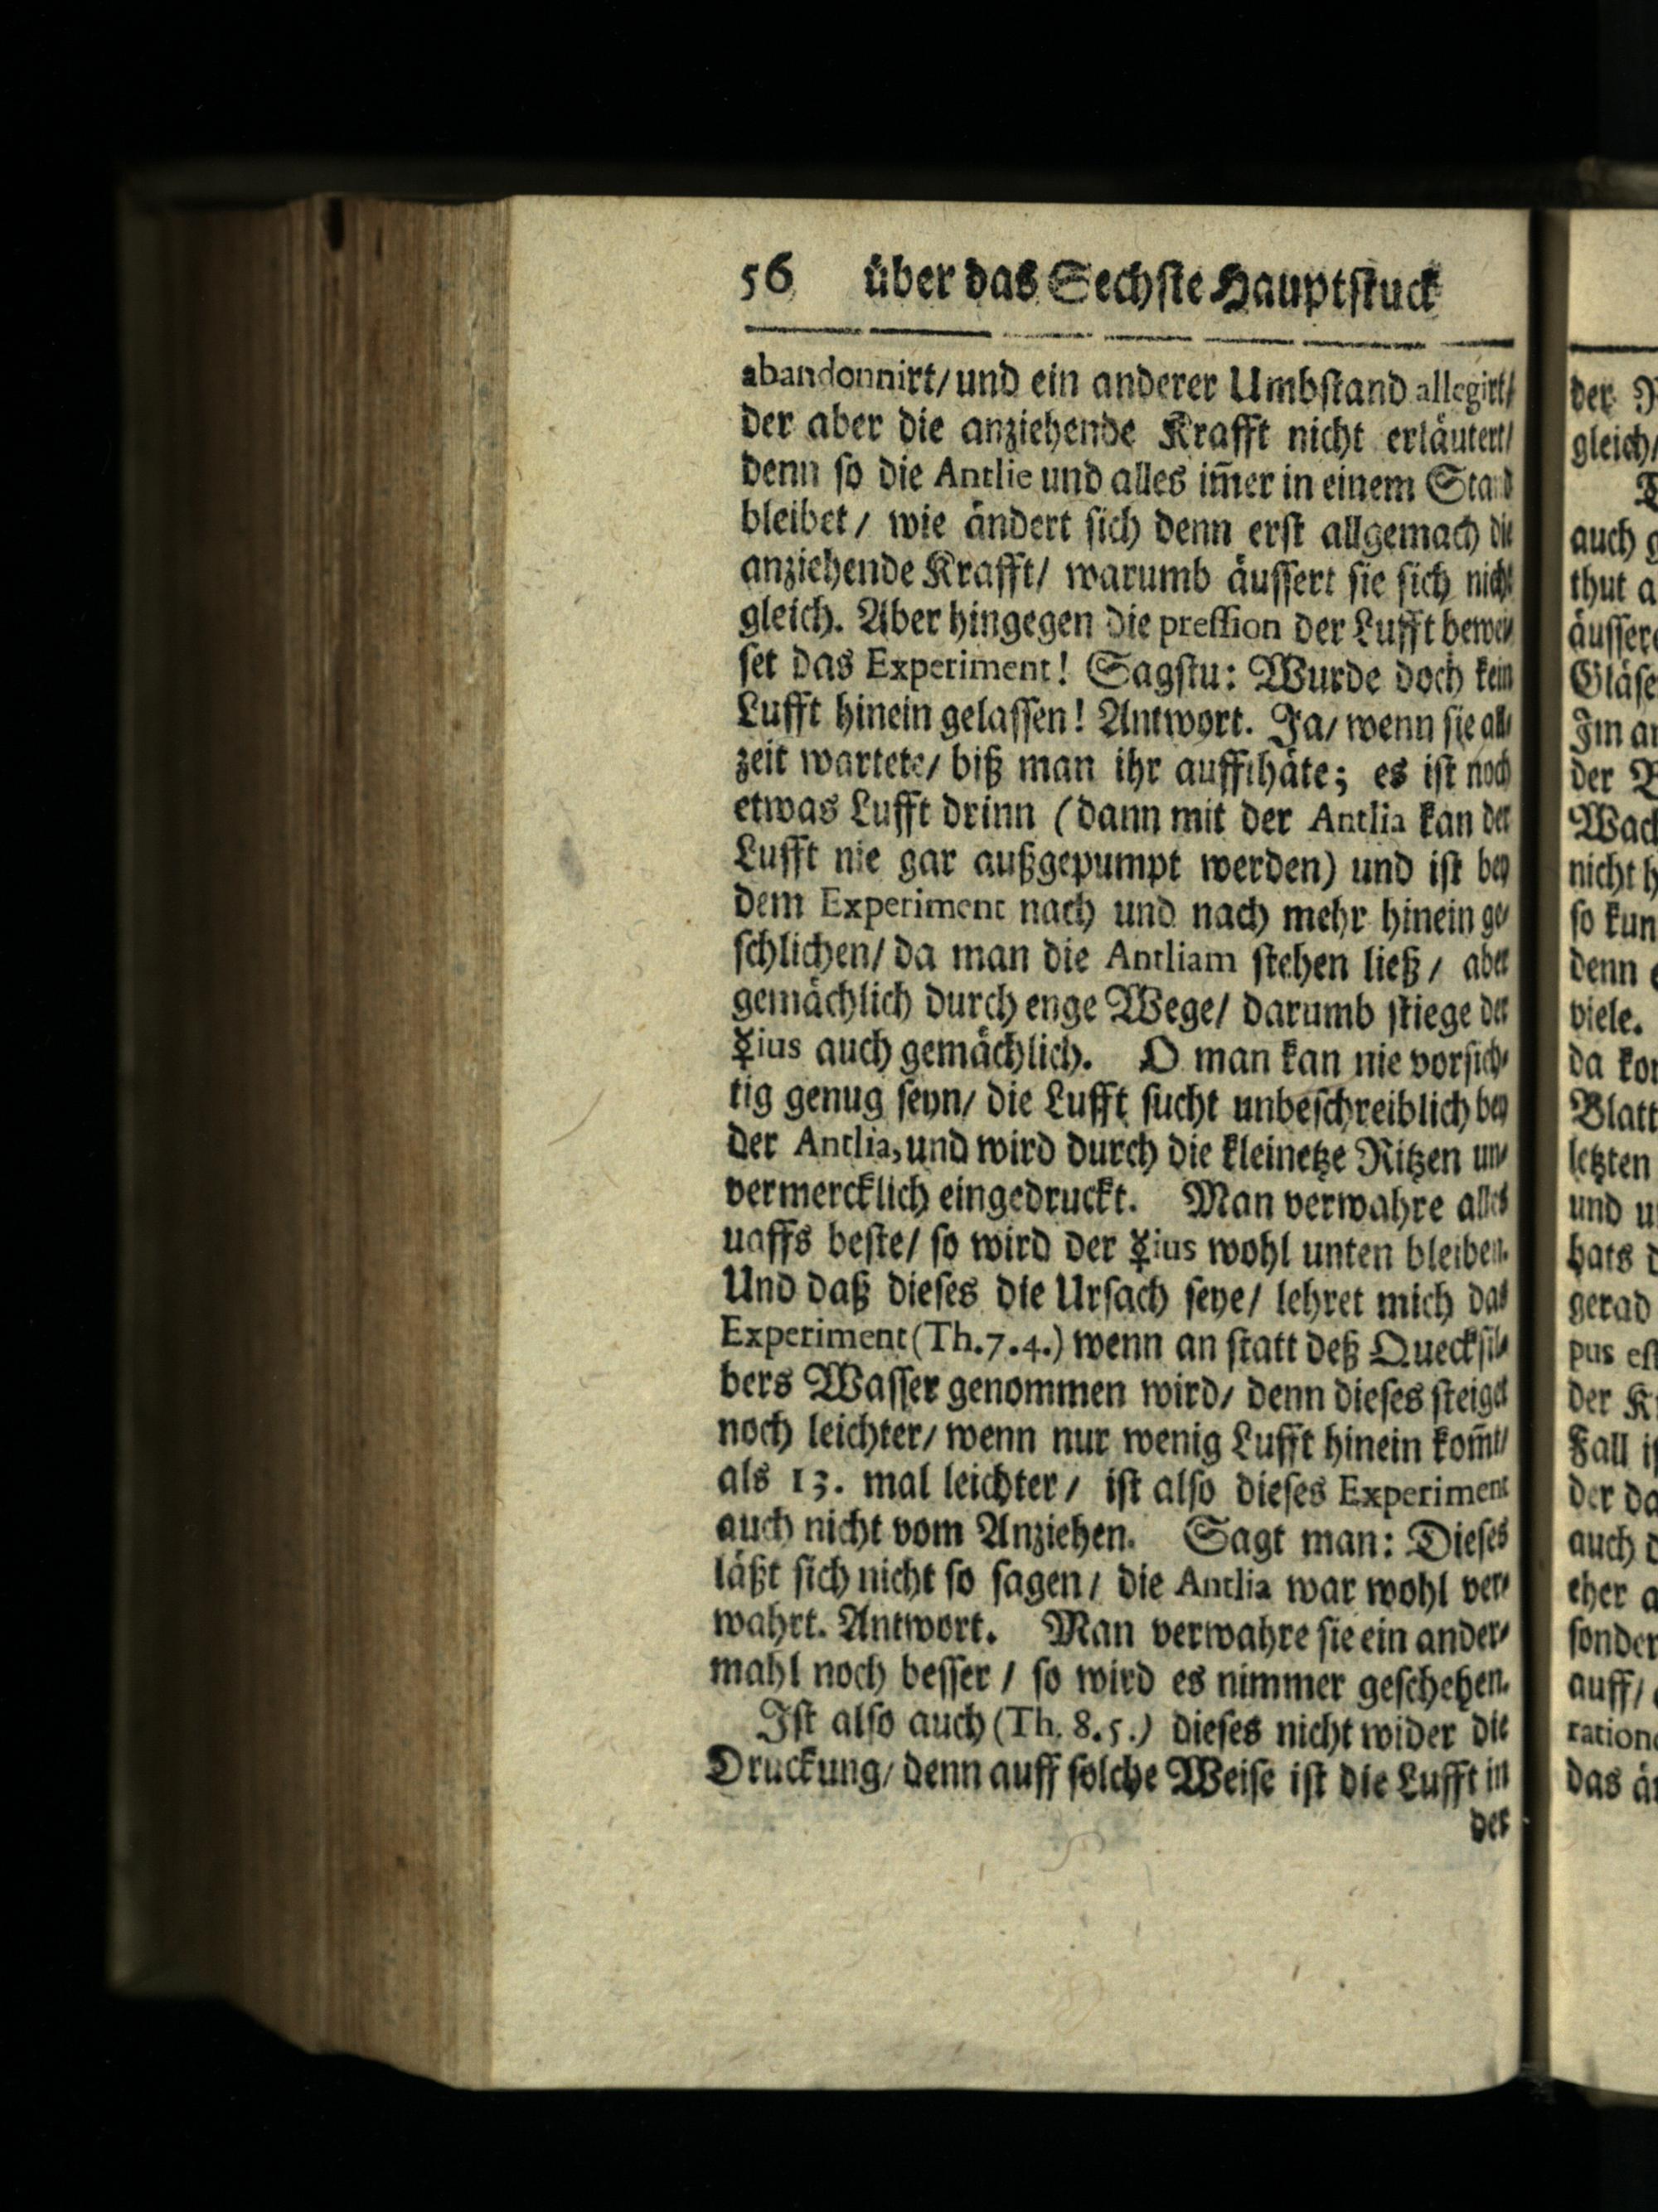 56 über das Sechste Hauptstuck
abandonnirt/ und ein anderer Umbstand allegirt/
der aber die anziehende Krafft nicht erläutert/
denn so die Antlie und alles im̃er in einem Stand
bleibet/ wie ändert sich denn erst allgemach die
anziehende Krafft/ warumb äussert sie sich nicht
gleich. Aber hingegen die pression der Lufft bewei/
set das Experiment! Sagstu: Wurde doch kein
Lufft hinein gelassen! Antwort. Ja/ wenn sie all/
zeit wartete/ biß man ihr auffthäte; es ist noch
etwas Lufft drinn (dann mit der Antlia kan der
Lufft nie gar außgepumpt werden) und ist bey
dem Experiment nach und nach mehr hinein ge/
schlichen/ da man die Antliam stehen ließ/ aber
gemächlich durch enge Wege/ darumb stiege der
☿ius auch gemächlich. O man kan nie vorsich/
tig genug seyn/ die Lufft sucht unbeschreiblich bey
der Antlia, und wird durch die kleinetze Ritzen un/
vermercklich eingedruckt. Man verwahre alles
uaffs beste/ so wird der ☿ius wohl unten bleiben.
Und daß dieses die Ursach seye/ lehret mich das
Experiment (Th. 7. 4.) wenn an statt deß Quecksil/
bers Wasser genommen wird/ denn dieses steiget
noch leichter/ wenn nur wenig Lufft hinein kom̃t/
als 13. mal leichter/ ist also dieses Experiment
auch nicht vom Anziehen. Sagt man: Dieses
läßt sich nicht so sagen/ die Antlia war wohl ver/
wahrt. Antwort. Man verwahre sie ein ander/
mahl noch besser/ so wird es nimmer geschehen.
Ist also auch (Th. 8. 5.) dieses nicht wider die
Druckung/ denn auff solche Weise ist die Lufft in
der
der
gleich/
auch
thut
Im
der
nicht
so
denn
viele.
da
letzten
und
hats
gerad
pus
der
Fall
der
auch
eher
auff/
das